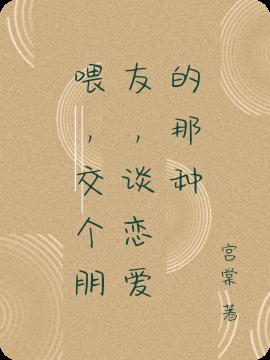 喂，交个朋
友，谈恋爱
的那种
宫棠著